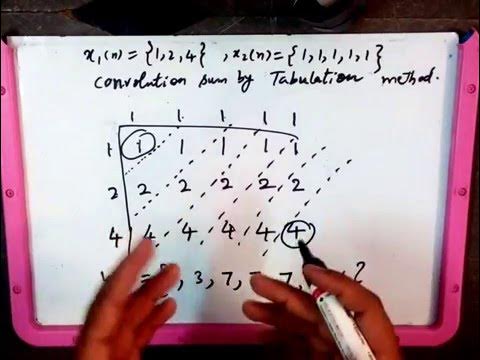 x₁(n) = {1,2,4} , x₂(n) = {1,1,1,1,1}
Convolution sum by Tabulation method.
1 1 1 1 1
1 1 1 1 1 1
2 2 2 2 2 2
4 4 4 4 4 4
= , 3, 7, 7,